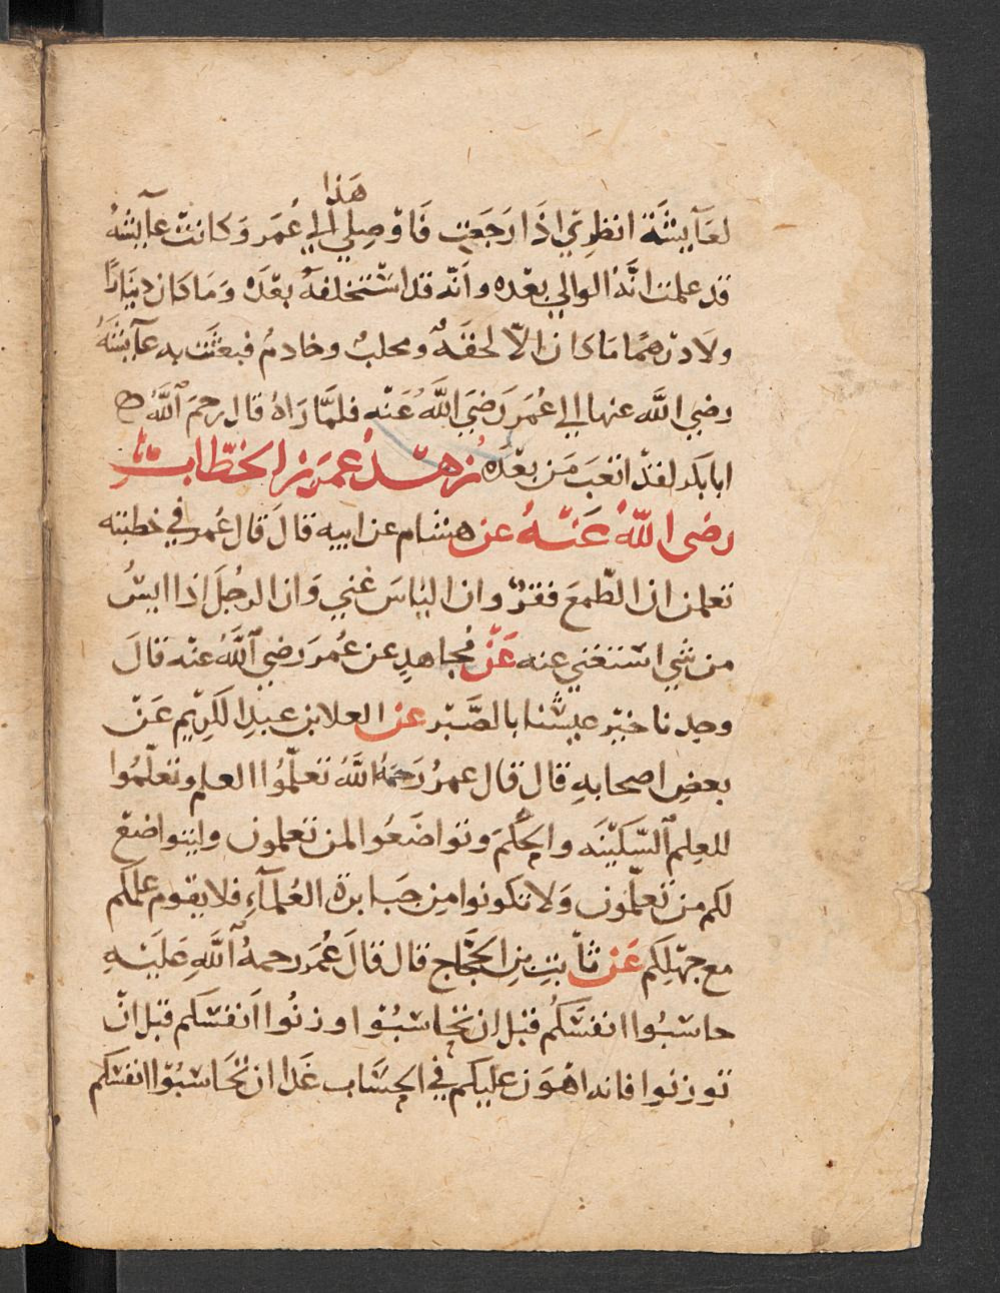 هَذا
لعَآيِشَة انظِري اذَا رَجَعَتِ فَاوْصِلي الي عُمَر وَكانتْ عآيشهُ
قد علمت انَّه الوالي بعْده وانّه قد استخلفهُ بعْدَه وَمَا كان دِينَارًا
ولا درْهمًا مَا كان الاّ لحقَةٌ ومحلبٌ وخادمٌ فبعثَت به عآيشَهُ
رضي الله عنها الي عُمَر رَضيَ اللَّهُ عَنْه فلمَّا رَاهُ قال رحمَ اللَّهُ
ابا بَكر لقدْ اتعَبَ مَن بعْدَه زهْدُ عُمَر بن الخطّاب
رضى اللّهُ عَنْهُ عن هشام عن ابيه قالَ قال عُمر في خطبته
تعلمن ان الطّمعَ فقرٌ وان الياسَ غني وَان الرجُلَ اذا ايسُ
من شي استغني عنه عَنْ مُجاهدٍ عن عُمَر رضي اللَّهُ عنْه قالَ
وجدنا خيْر عيشنا بالصَّبْر عن العلا بن عبدِ الكَريْم عَنْ
بعض اصحابهِ قال قال عمرُ رَحمهُ اللَّهُ تعلّمُوا العلم وتعلّمُوا
للعِلم السّكيْنَه والحُكمَ وتواضَعُوا لمن تعلمون وليتواضعْ
لكم من تعَلّمون وَلا تكونوا مِن جَبابرة العُلمآءِ فلا يقوم علمكم
مع جَهْلِكم عَن ثابتِ بنِ الحجَّاج قال قالَ عُمَر رحمهُ اللَّهِ عَليْه
حاسبُوا انفسَكُم قبْل ان تحاسَبُوا وزنُوا انفسَكم قبْل انْ
توزنوا فانه اهْوَن عليكم في الحِسَاب غَدا ان تُحَاسبُوْا انفسَكم